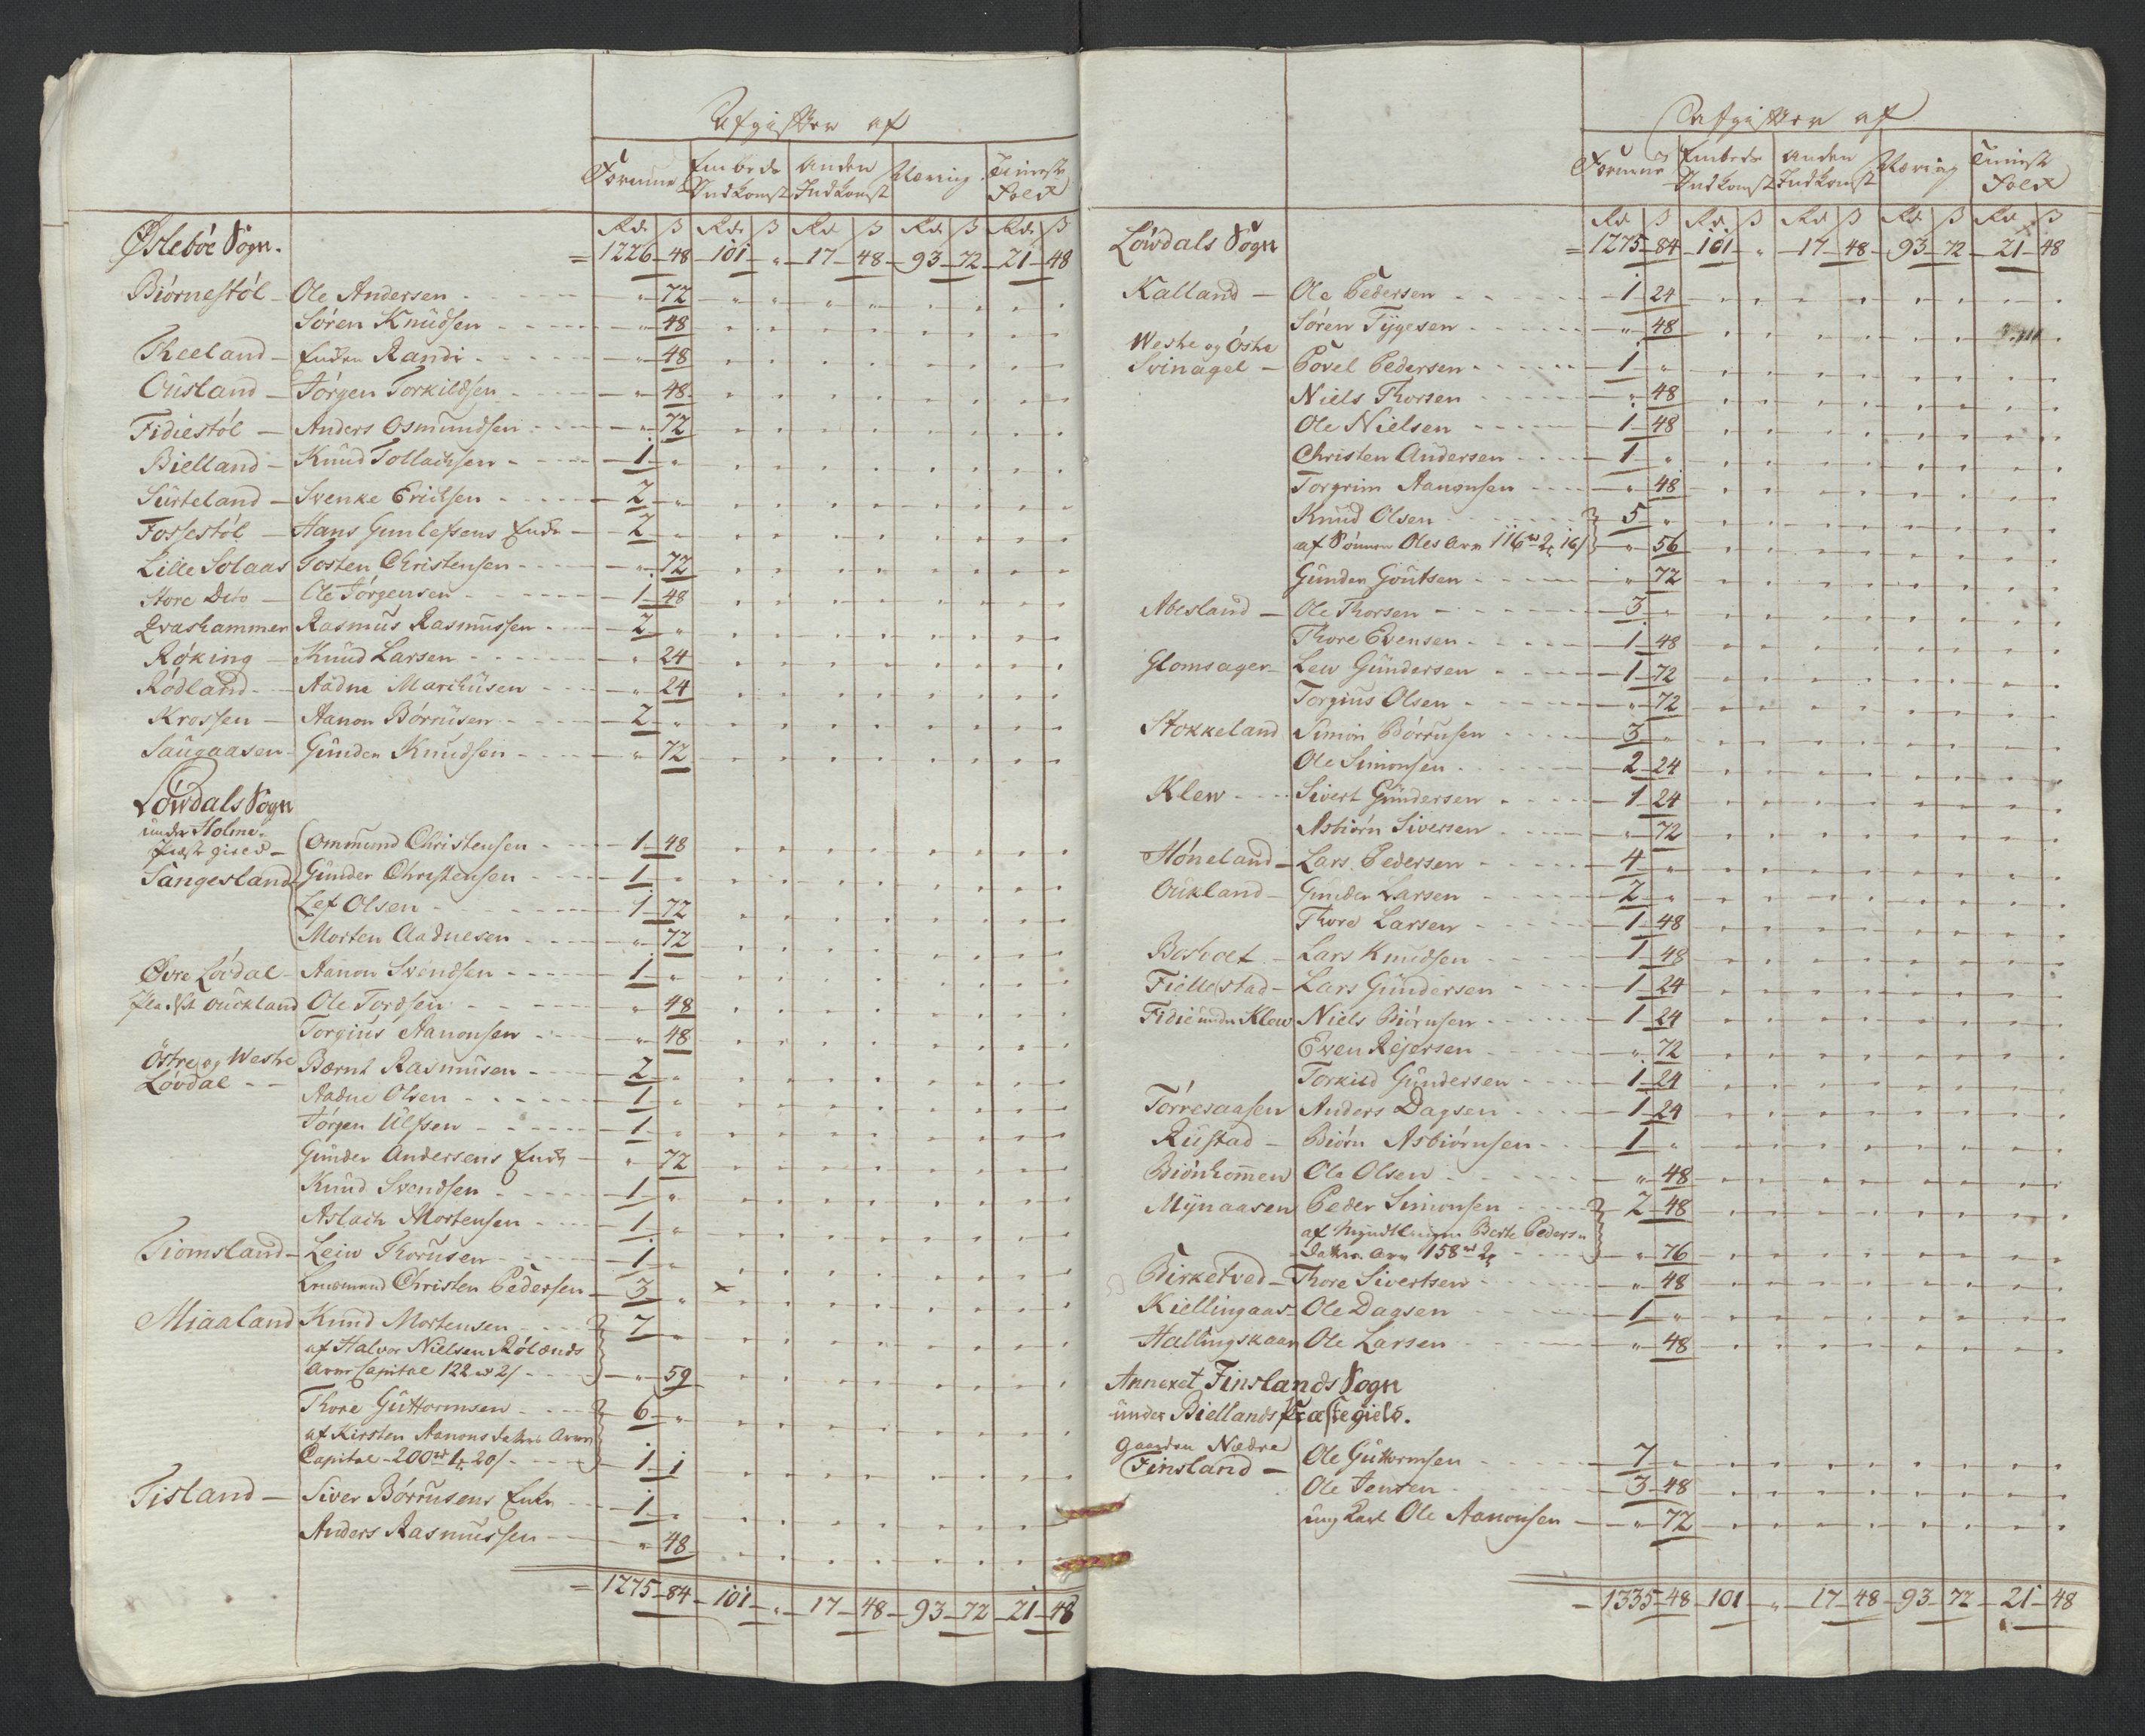 Afgifter af
Formue Embeds Indkomst Anden Indkomst Næring Tienest Folk
Rd ß Rd ß Rd ß Rd ß Rd ß
Øslebøe Sogn. = 1226 - 48 - 101 - " - 17 - 48 - 93 - 72 - 21 - 48
Biørnestøl - Ole Andersen - " - 72
Søren Knudsen - " - 48
Theeland - Enken Randi - " - 48
Ousland - Jørgen Torkildsen - " - 48
Fidiestøl - Anders Osmundsen - " - 72
Bielland - Knud Tollachsen - 1 - "
Surteland - Svenke Erichsen - 2 - "
Fossestøl - Hans Gunlefsens Enke - 2 - "
Lille Solaas Tosten Christensen - " - 72
Store - Ole Jørgensen - 1 - 48
Qvashammer Rasmus Rasmussen - 2 - "
Røking - Knud Larsen - " - 24
Rødland - Aadne Marcusen - " - 24
Krossen - Aanon Børrusen - 2 - "
Saugaasen - Gunder Knudsen - " - 72
Løwdals Sogn
under Holme
Præstegield - Ommund Christensen - 1 - 48
Sangesland Gunder Christensen - 1 - "
Lef Olsen - 1 - 72
Morten Aadnesen - " - 72
Øvre Løvdal - Aanon Svendsen - 1 - "
Ouckland Ole Tordsen - " - 48
Torgius Aanonsen - " - 48
Østre og Westre Bærnt Rasmusen - 2 - "
Løvdal - - Aadne Olsen - 1 - "
Jørgen Ulfsen - 1 - "
Gunder Andersens Enke - " - 72
Knud Svendsen - 1 - "
Aslach Mortensen - 1 - "
Tiomsland - Leiw Thorusen - 1 - "
Lensmand Christen Pedersen - 3 - " ×
Miaaland Knud Mortensen - 7 - "
af Halvor Nielsen Rølands
Arve Capital 122 rd 2/ - " - 59
Thore Guttormsen - 6 - "
af Kirsten Aanons datters Arve
Capital - 200 rd 1 20/ - 1 - 1
Tisland - Siver Børrusens Enke - 1 - "
Anders Rasmussen - " - 48
= 1275 - 84 - 101 - " - 17 - 48 - 93 - 72 - 21 - 48
Afgifter af
Formue Embeds Indkomst Anden Indkomst Næring Tienest Folk
Rd ß Rd ß Rd ß Rd ß Rd ß
Løwdals Sogn = 1275 - 84 - 101 - " - 17 - 48 - 93 - 72 - 21 - 48
Kalland - Ole Pedersen - 1 - 24
Søren Tygesen - " - 48
Westre og Østre
Svinagel - Povel Pedersen - 1 - "
Niels Thorsen - " - 48
Ole Nielsen - 1 - 48
Christen Andersen - 1 - "
Torgrim Aanonsen - " - 48
Knud Olsen - 5 - "
af Sønnen Oles Arv 116 rd 2 16/ - " - 56
Gunder Goutsen - " - 72
Abesland - Ole Thorsen - 3 - "
Thore Evensen - 1 - 48
Glomsager - Lew Gundersen - 1 - 72
Torgius Olsen - " - 72
Stokkeland Simon Børrusen - 3 - "
Ole Simonsen - 2 - 24
Klew - Sivert Gundersen - 1 - 24
Asbiørn Siversen - " - 72
Høneland - Lars Pedersen - 4 - "
Oukland - Gunder Larsen - 2 - "
Thore Larsen - 1 - 48
- Lars Knudsen - 1 - 48
Fiellestad - Lars Gundersen - 1 - 24
Fidie under Klew Niels Biørnsen - 1 - 24
Even Rejersen - " - 72
Torkild Gundersen - 1 - 24
Torresaasen Anders Dagsen - 1 - 24
Rustad - Biørn Asbiørnsen - 1 - "
Ole Olsen - " - 48
Mynaasen Peder Simonsen - 2 - 48
af Myndtlingen Berte Peders
Datters Arv 158 rd 2 - " - 76
Birketved - Thore Sivertsen - " - 48
Kiellingaas - Ole Dagsen - 1 - "
Hallingskaar Ole Larsen - " - 48
Annexet Finslands Sogn
under Biellands Præstegield.
Gaarden Nædre Ole Guttormsen - 7 - "
Finsland - Ole Jensen - 3 - 48
ung Karl Ole Aanonsen - " - 72
= 1335 - 48 - 101 - " - 17 - 48 - 93 - 72 - 21 - 48